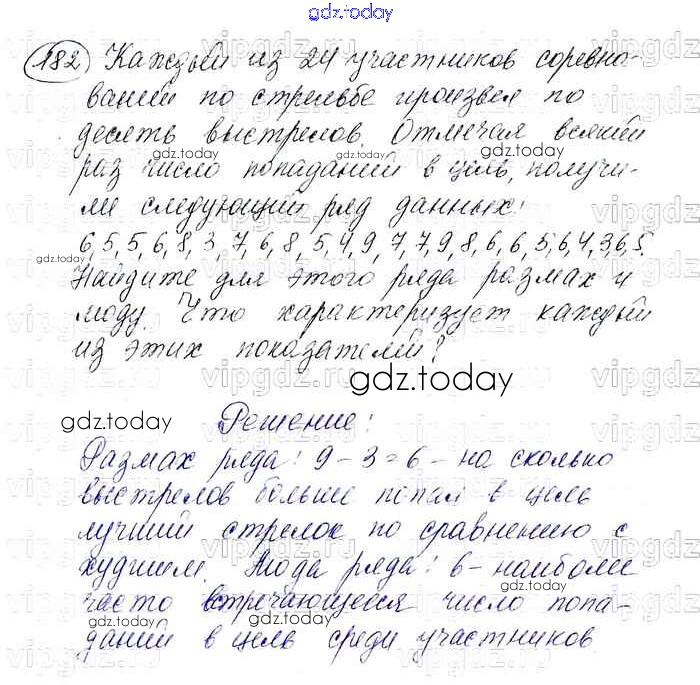 gdz.today
182 Каждый из 24 участников соревно-
ваний по стрельбе произвел по
десять выстрелов. Отмечая всякий
gdz.today gdz.today
раз число попаданий в цель, получи-
ли следующий ряд данных:
6,5,5,6,8,3,7,6,8,5,4,9,7,7,9,8,6,6,5,6,4,3,6,5.
gdz.today gdz.today
Найдите для этого ряда размах и
моду. Что характеризует каждый
gdz.today
из этих показателей?
gdz.today
gdz.today
Решение:
Размах ряда: 9-3=6 - на сколько
выстрелов больше попал в цель
лучший стрелок по сравнению с
худшим. Мода ряда: 6 - наиболее
часто встречающееся число попа-
даний в цель среди участников.